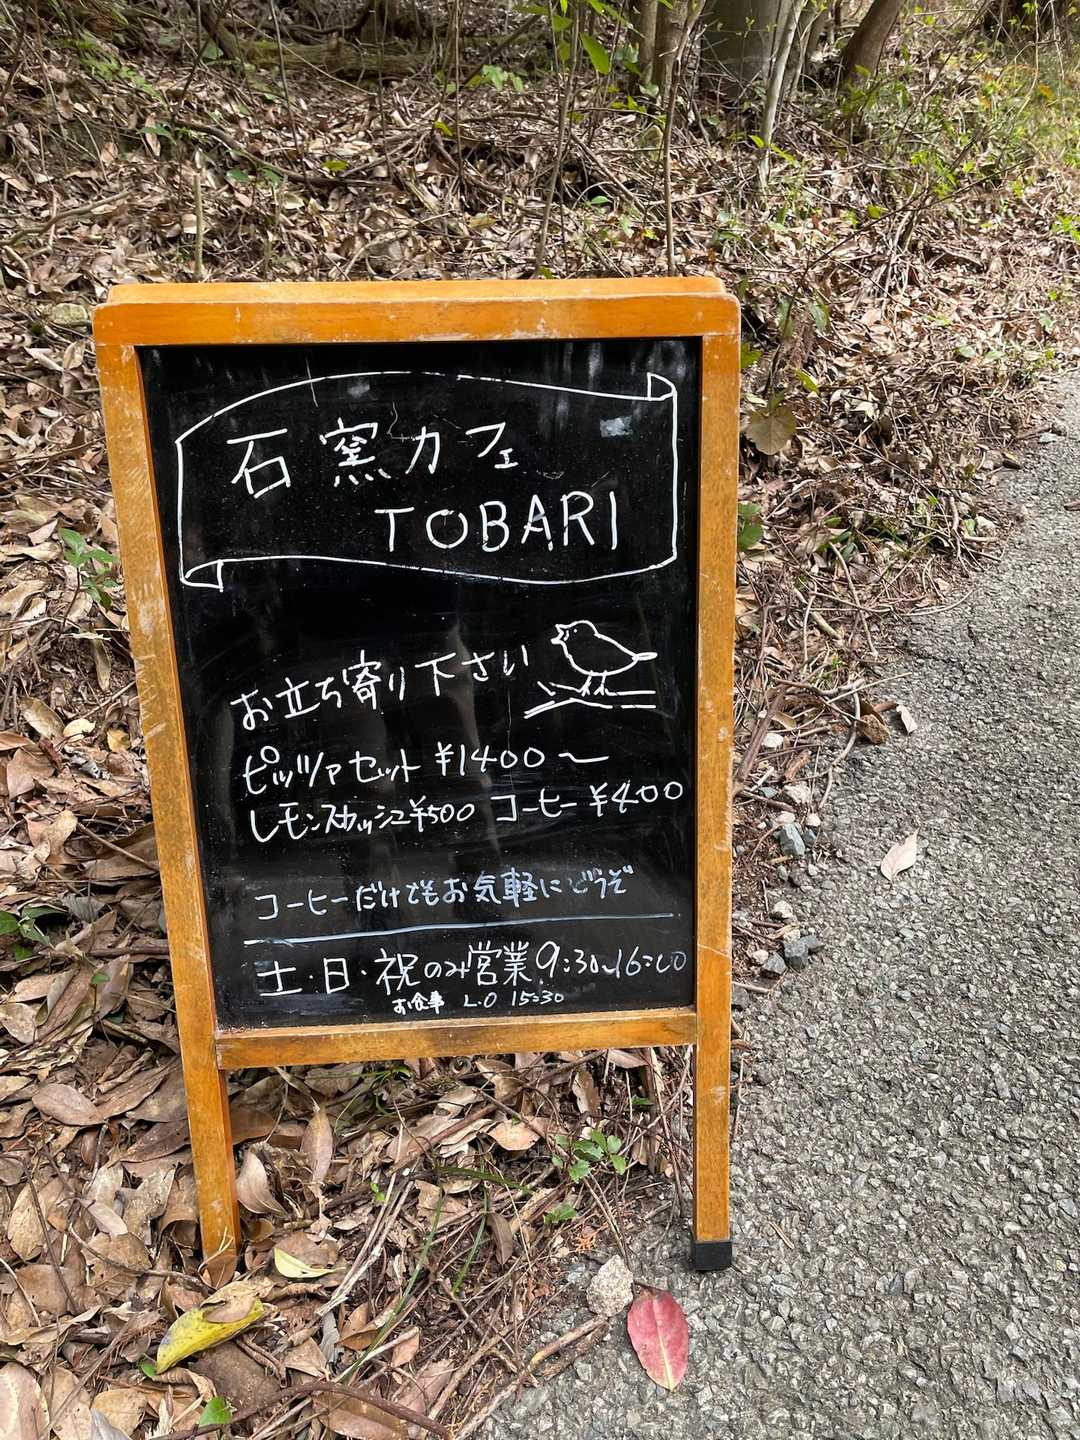 石窯カフェ
TOBARI
お立ち寄り下さい
ピッツァセット ¥1400〜
レモンスカッシュ¥500 コーヒー ¥400
コーヒーだけでもお気軽にどうぞ
土・日・祝のみ営業 9:30〜16:00
お食事 L.O 15:30